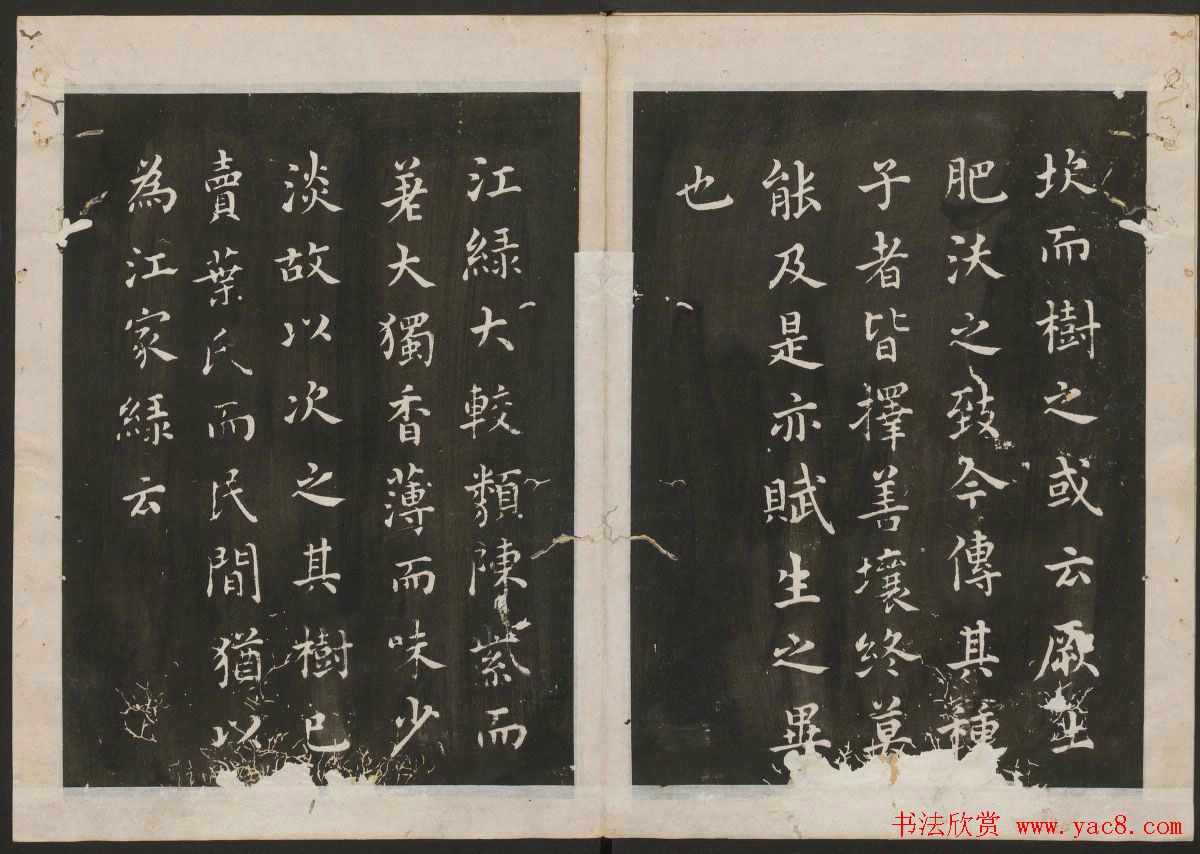 坎而樹之或云厥土
肥沃之致今傳其種
子者皆擇善壤終莫
能及是亦賦生之異
也
江綠大較類陳紫而
差大獨香薄而味少
淡故以次之其樹已
賣葉氏而民間猶以
為江家綠云
书法欣赏 www.yac8.com